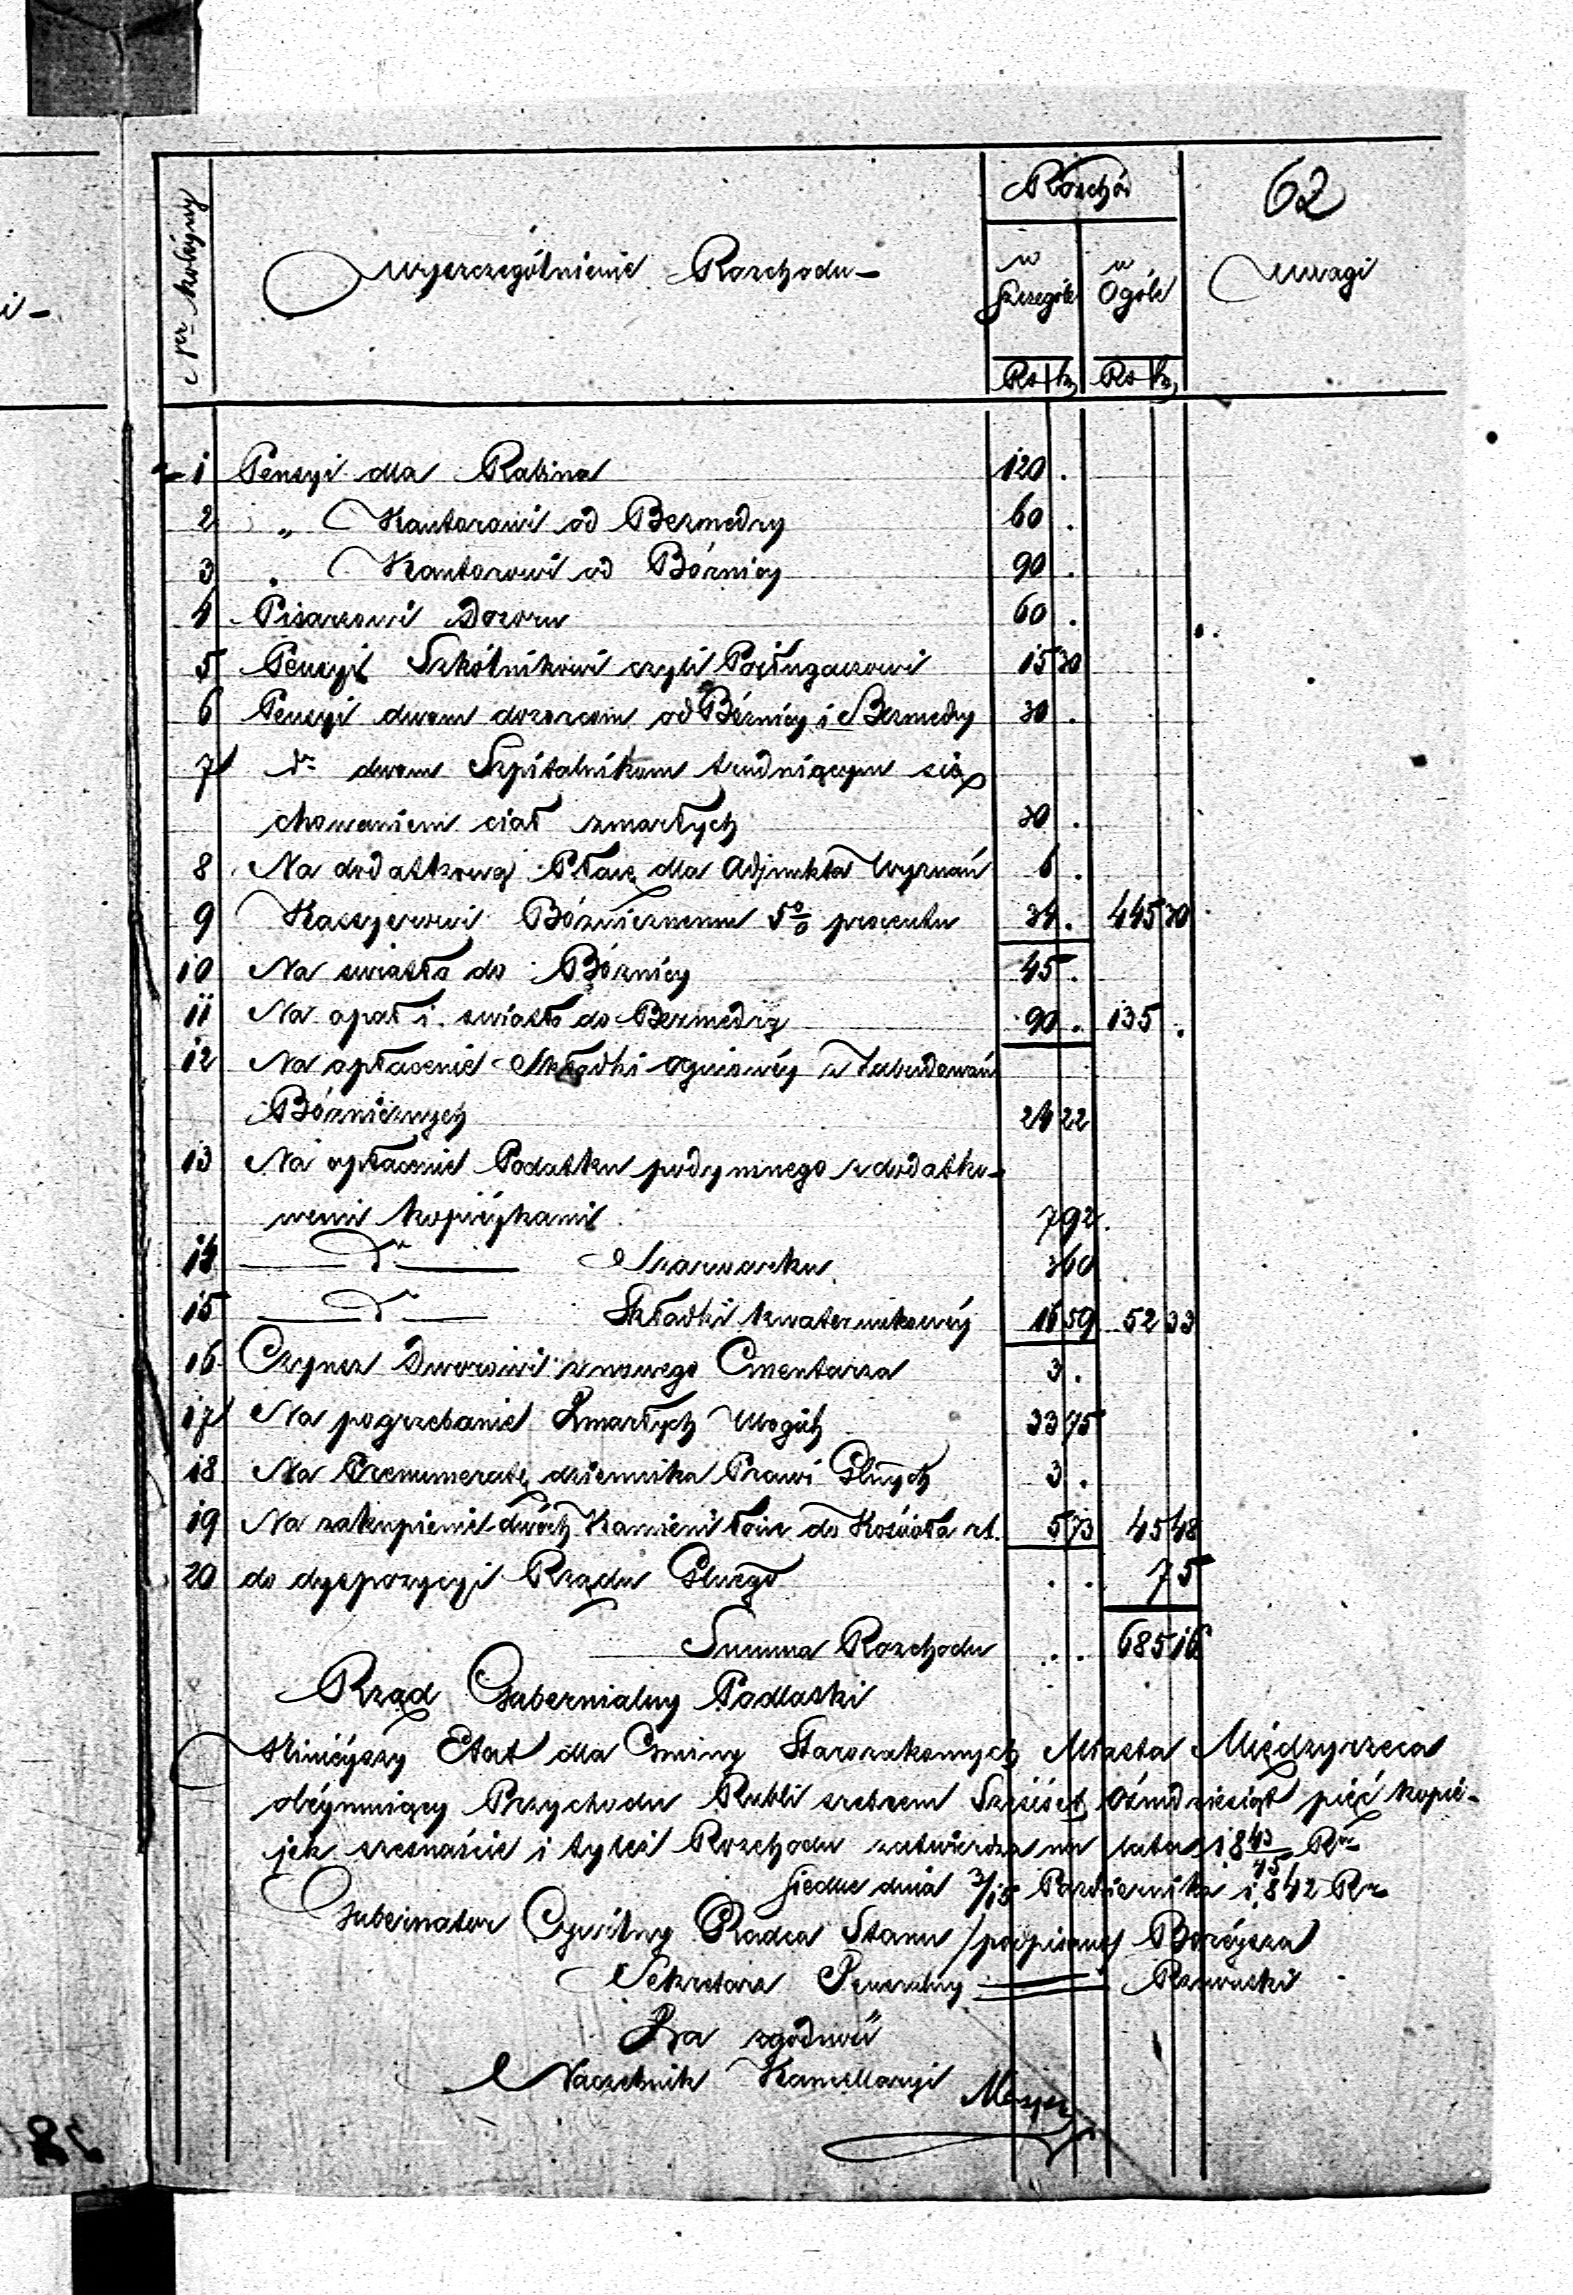 62
Rozchód
Ner kolejny
Wyszczególnienie Rozchodu
w Szczególe
w Ogóle
Uwagi
Rs k Rs k
1 Pensyi dla Rabina 120 .
2 „ Kantorowi od Bezmedry 60 .
3 „ Kantorowi od Bóżnicy 90 .
4 Pisarzowi Dozoru 60 .
5 Pensyi Szkólnikowi czyli Posługaczowi 15 30
6 Pensyi dwom dozorcom od Bóżnicy i Bezmedry 30 .
7 do dwom Szpitalnikom trudniącym się
chowaniem ciał zmarłych 30 .
8 Na dodatkową Płacę dla Adjunkta Wyznań 6 .
9 Kassyerowi Bóżnicznemu 5% procentu 34 . 445 30
10 Na swiatła do Bóżnicy 45 .
11 Na opał i swiatło do Bezmedry 90 . 135 .
12 Na opłacenie Składki ogniowéy z Zabudowań
Bóżnicznych 24 22
13 Na opłacenie Podatku podymnego z dodatko-
wemi kopiéykami 7 92
14 do Szarwarku 3 60
15 do Składki kwaterunkowéy 16 59 52 33
16 Czynsz Dworowi z nowego Cmentarza 3 .
17 Na pogrzebanie Zmarłych Ubogich 33 75
18 Na Prenumeratę dziennika Praw i Glnych 3 .
19 Na zakupienie dwóch Kamieni łoiu do Kościoła rl. 5 73 45 48
20 do dyspozycyi Rządu Glnego . . 7 5
Summa Rozchodu . . 685 16
Rząd Gubernialny Podlaski
Niniéyszy Etat dla Gminy Starozakonnych Miasta Międzyrzeca
obéymuiący Przychodu Rubli srebrem Sześćset Ośmdziesiąt pięć kopie-
jek szesnaście i tyleż Rozchodu zatwierdza na lata 1843/45 Rr
Siedlce dnia 3/15 Pazdziernika 1842 Rr
Gubernator Cywilny Radca Stanu /podpisany/ Boréysza
Sekretarz Jeneralny
Za zgodność
Naczelnik Kancellaryi